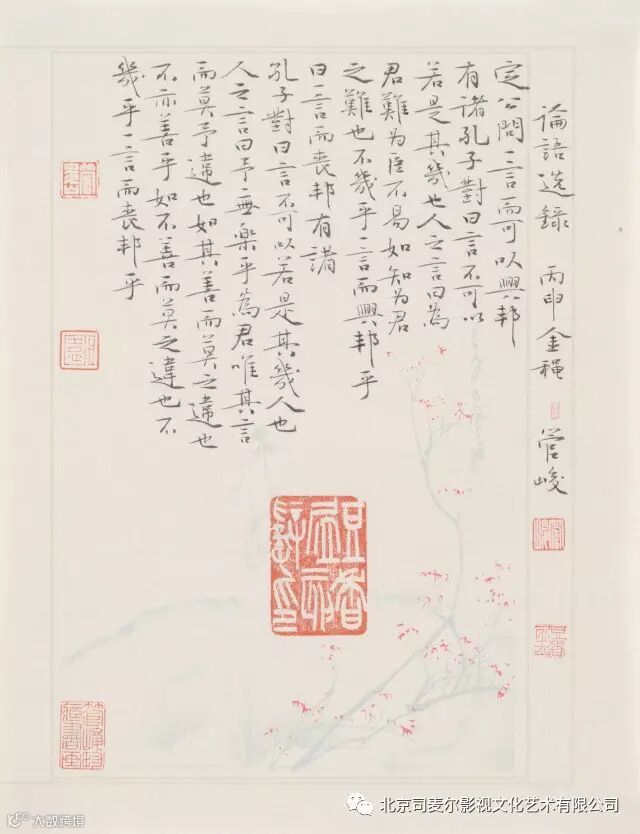 論語选録 丙申金穐 管峻
定公問一言而可以興邦
有諸孔子對曰言不可以
若是其幾也人之言曰為
君難为臣不易如知为君
之難也不幾乎一言而興邦乎
曰一言而喪邦有諸
孔子對曰言不可以若是其幾人也
人之言曰予無樂乎為君唯其言
而莫予違也如其善而莫之違也
不亦善乎如不善而莫之違也不
幾乎一言而喪邦乎
北京司麦尔影视文化艺术有限公司
大数跨境